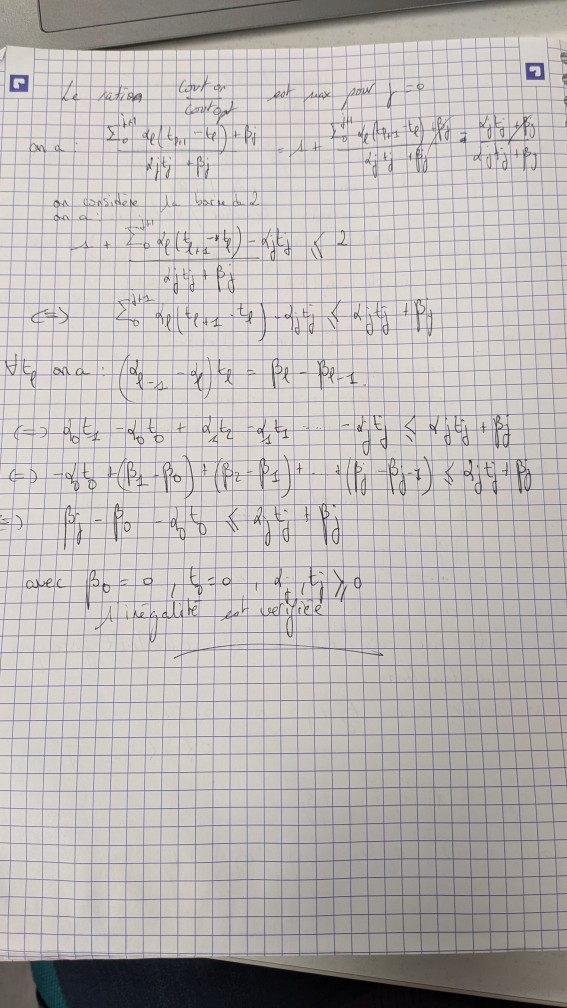 Le ration Cout on / Cout opt est max pour j = 0
on a : \frac{\sum_0^{j+1} α_l(t_{l+1} - t_l) + β_j}{α_j t_j + β_j} = 1 + \frac{\sum_0^{j+1} α_l(t_{l+1} - t_l) + β_j}{α_j t_j + β_j} = \frac{α_j t_j + β_j}{α_j t_j + β_j}
on considère la borne de 2
on a :
1 + \frac{\sum_0^{j+1} α_l(t_{l+1} - t_l) - α_j t_j}{α_j t_j + β_j} ⩽ 2
(=) \sum_0^{j+1} α_l(t_{l+1} - t_l) - α_j t_j ⩽ α_j t_j + β_j
∀ t_l on a : (α_{l-1} - α_l) t_l = β_l - β_{l-1}.
(=) α_0 t_1 - α_0 t_0 + α_1 t_2 - α_1 t_1 ... - α_j t_j ⩽ α_j t_j + β_j
(=) -α_0 t_0 + (β_1 - β_0) + (β_2 - β_1) + ... + (β_j - β_{j-1}) ⩽ α_j t_j + β_j
=) β_j - β_0 - α_0 t_0 ⩽ α_j t_j + β_j
avec β_0 = 0 , t_0 = 0 , α_j , t_j ⩾ 0
l'inégalité est vérifiée